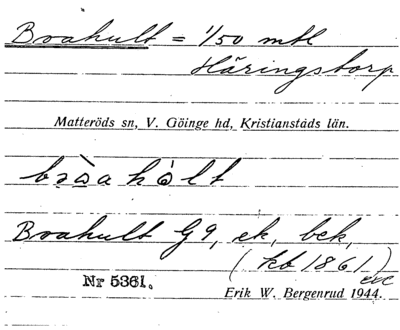 Boahult = 1/50 mtl
Häringstorp
Matteröds sn, V. Göinge hd, Kristianstads län.
Boahult G9, ek, bek,
(kb 1861)
Nr 5361.
Erik W. Bergenrud 1944.